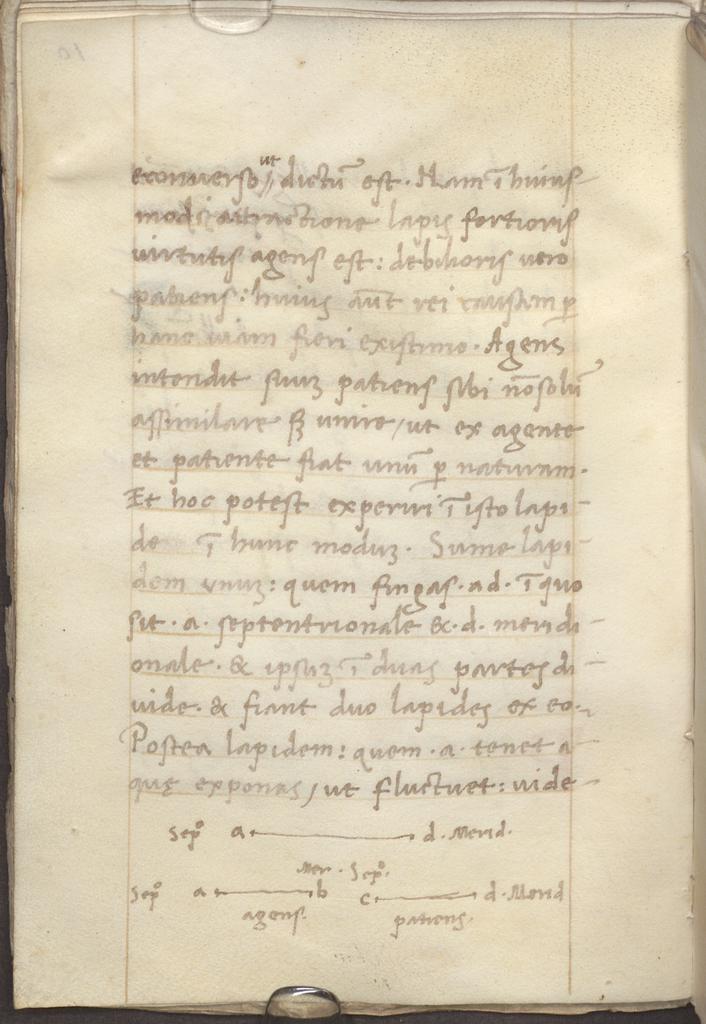 econuerso ut // dictū est. Nam ī huius-
modi attractione lapis fortioris
virtutis agens est: debilioris vero
patiens: huius aūt rei causam ꝑ
hanc viam fieri existimo. Agens
intendit suuz patiens sibi nōsolū
assimilare sꝫ unire, ut ex agente
et patiente fiat unū ꝑ naturam.
Et hoc potest experiri ī isto lapi-
de ī hunc moduz. Sume lapi-
dem vnuz: quem fingas .ad. ī quo
sit .a. septentrionale &.d. meridi-
onale. & ipsuz ī duas partes di-
uide. & fiant duo lapides ex eo.
Postea lapidem: quem .a. tenet a-
quę exponas, ut fluctuet: vide-
Sepº a. d. Merid.
Mer. Sepº.
Sepº a b c d. Merid
agens. patiens.